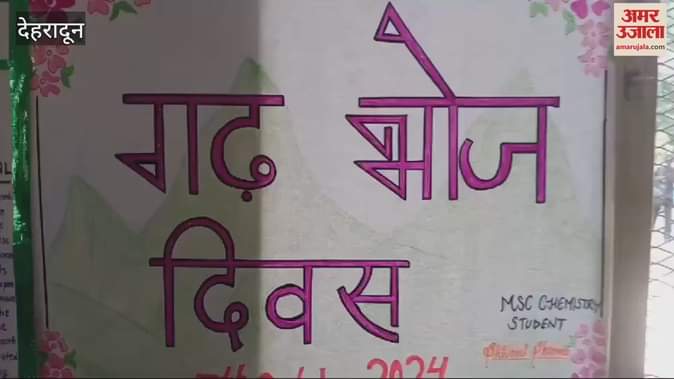 देहरादून
अमर
उजाला
amarujala.com
गढ़ भोज
दिवस
MSC CHEMISTRY
STUDENT
2024